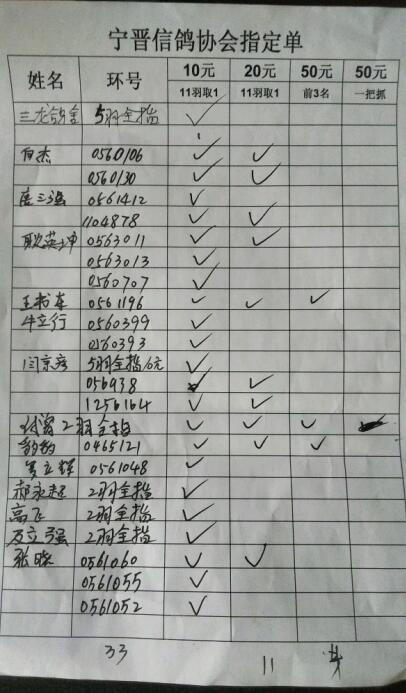 宁晋信鸽协会指定单
姓名 环号 10元 20元 50元 50元
11羽取1 11羽取1 前3名 一把抓
三龙鸽舍 5羽全指 ✓
白杰 0560106 ✓ ✓
0560130 ✓ ✓
0561412 ✓
1104878 ✓ ✓
耿英坤 0563011 ✓ ✓
0563013 ✓
0560707 ✓
王书车 0561196 ✓ ✓ ✓
牛立行 0560399 ✓
0560393 ✓
闫京彦 5羽全指10元 ✓
056938 ✓ ✓
1256164 ✓ ✓
2羽全指 ✓ ✓ ✓
豹豹 0465121 ✓ ✓ ✓
贾立辉 0561048 ✓
郝永超 2羽全指 ✓
高飞 2羽全指 ✓
万立强 2羽全指 ✓
张晓 0561060 ✓ ✓
0561055 ✓
0561052 ✓
33 11